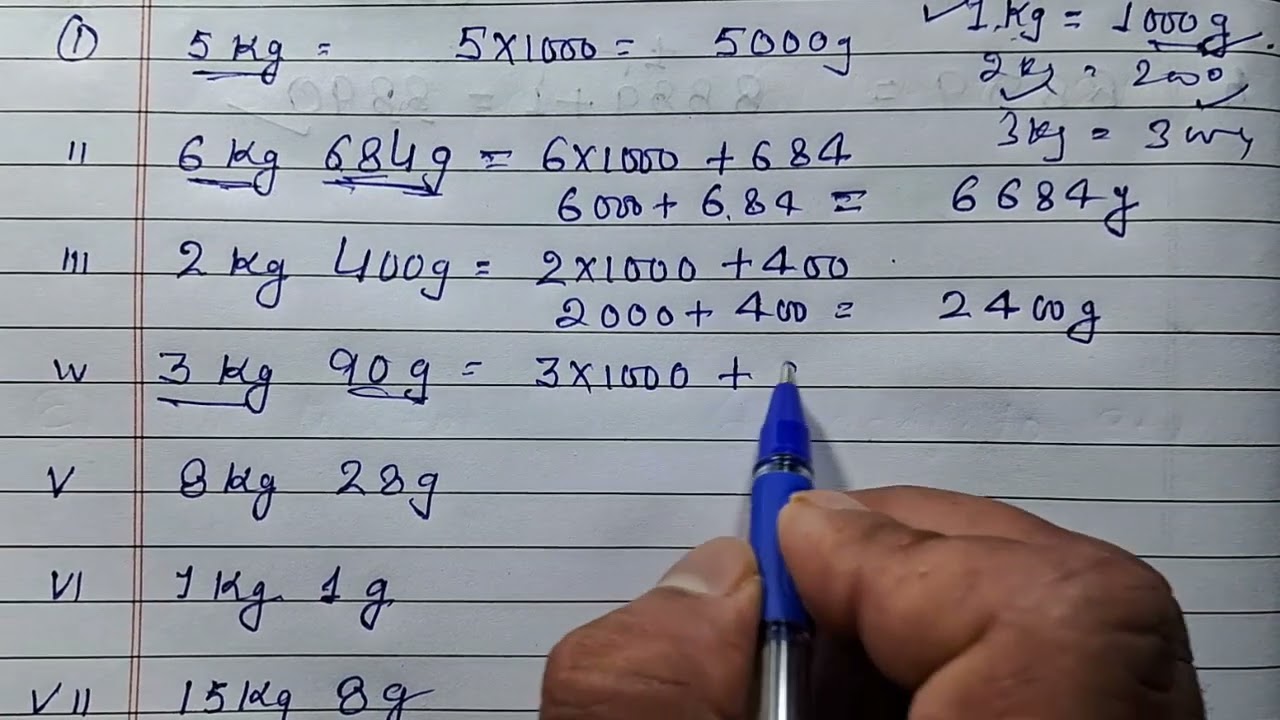 ① 5 Kg = 5×1000 = 5000g
✓1 Kg = 1000g.
2 Kg = 2000
3 Kg =
II 6 Kg 684g = 6×1000 + 684
6000 + 684 = 6684g
III 2 Kg 400g = 2×1000 + 400
2000 + 400 = 2400g
IV 3 Kg 90g = 3×1000 +
V 8 Kg 28g
VI 1 Kg 1g
VII 15 Kg 8g